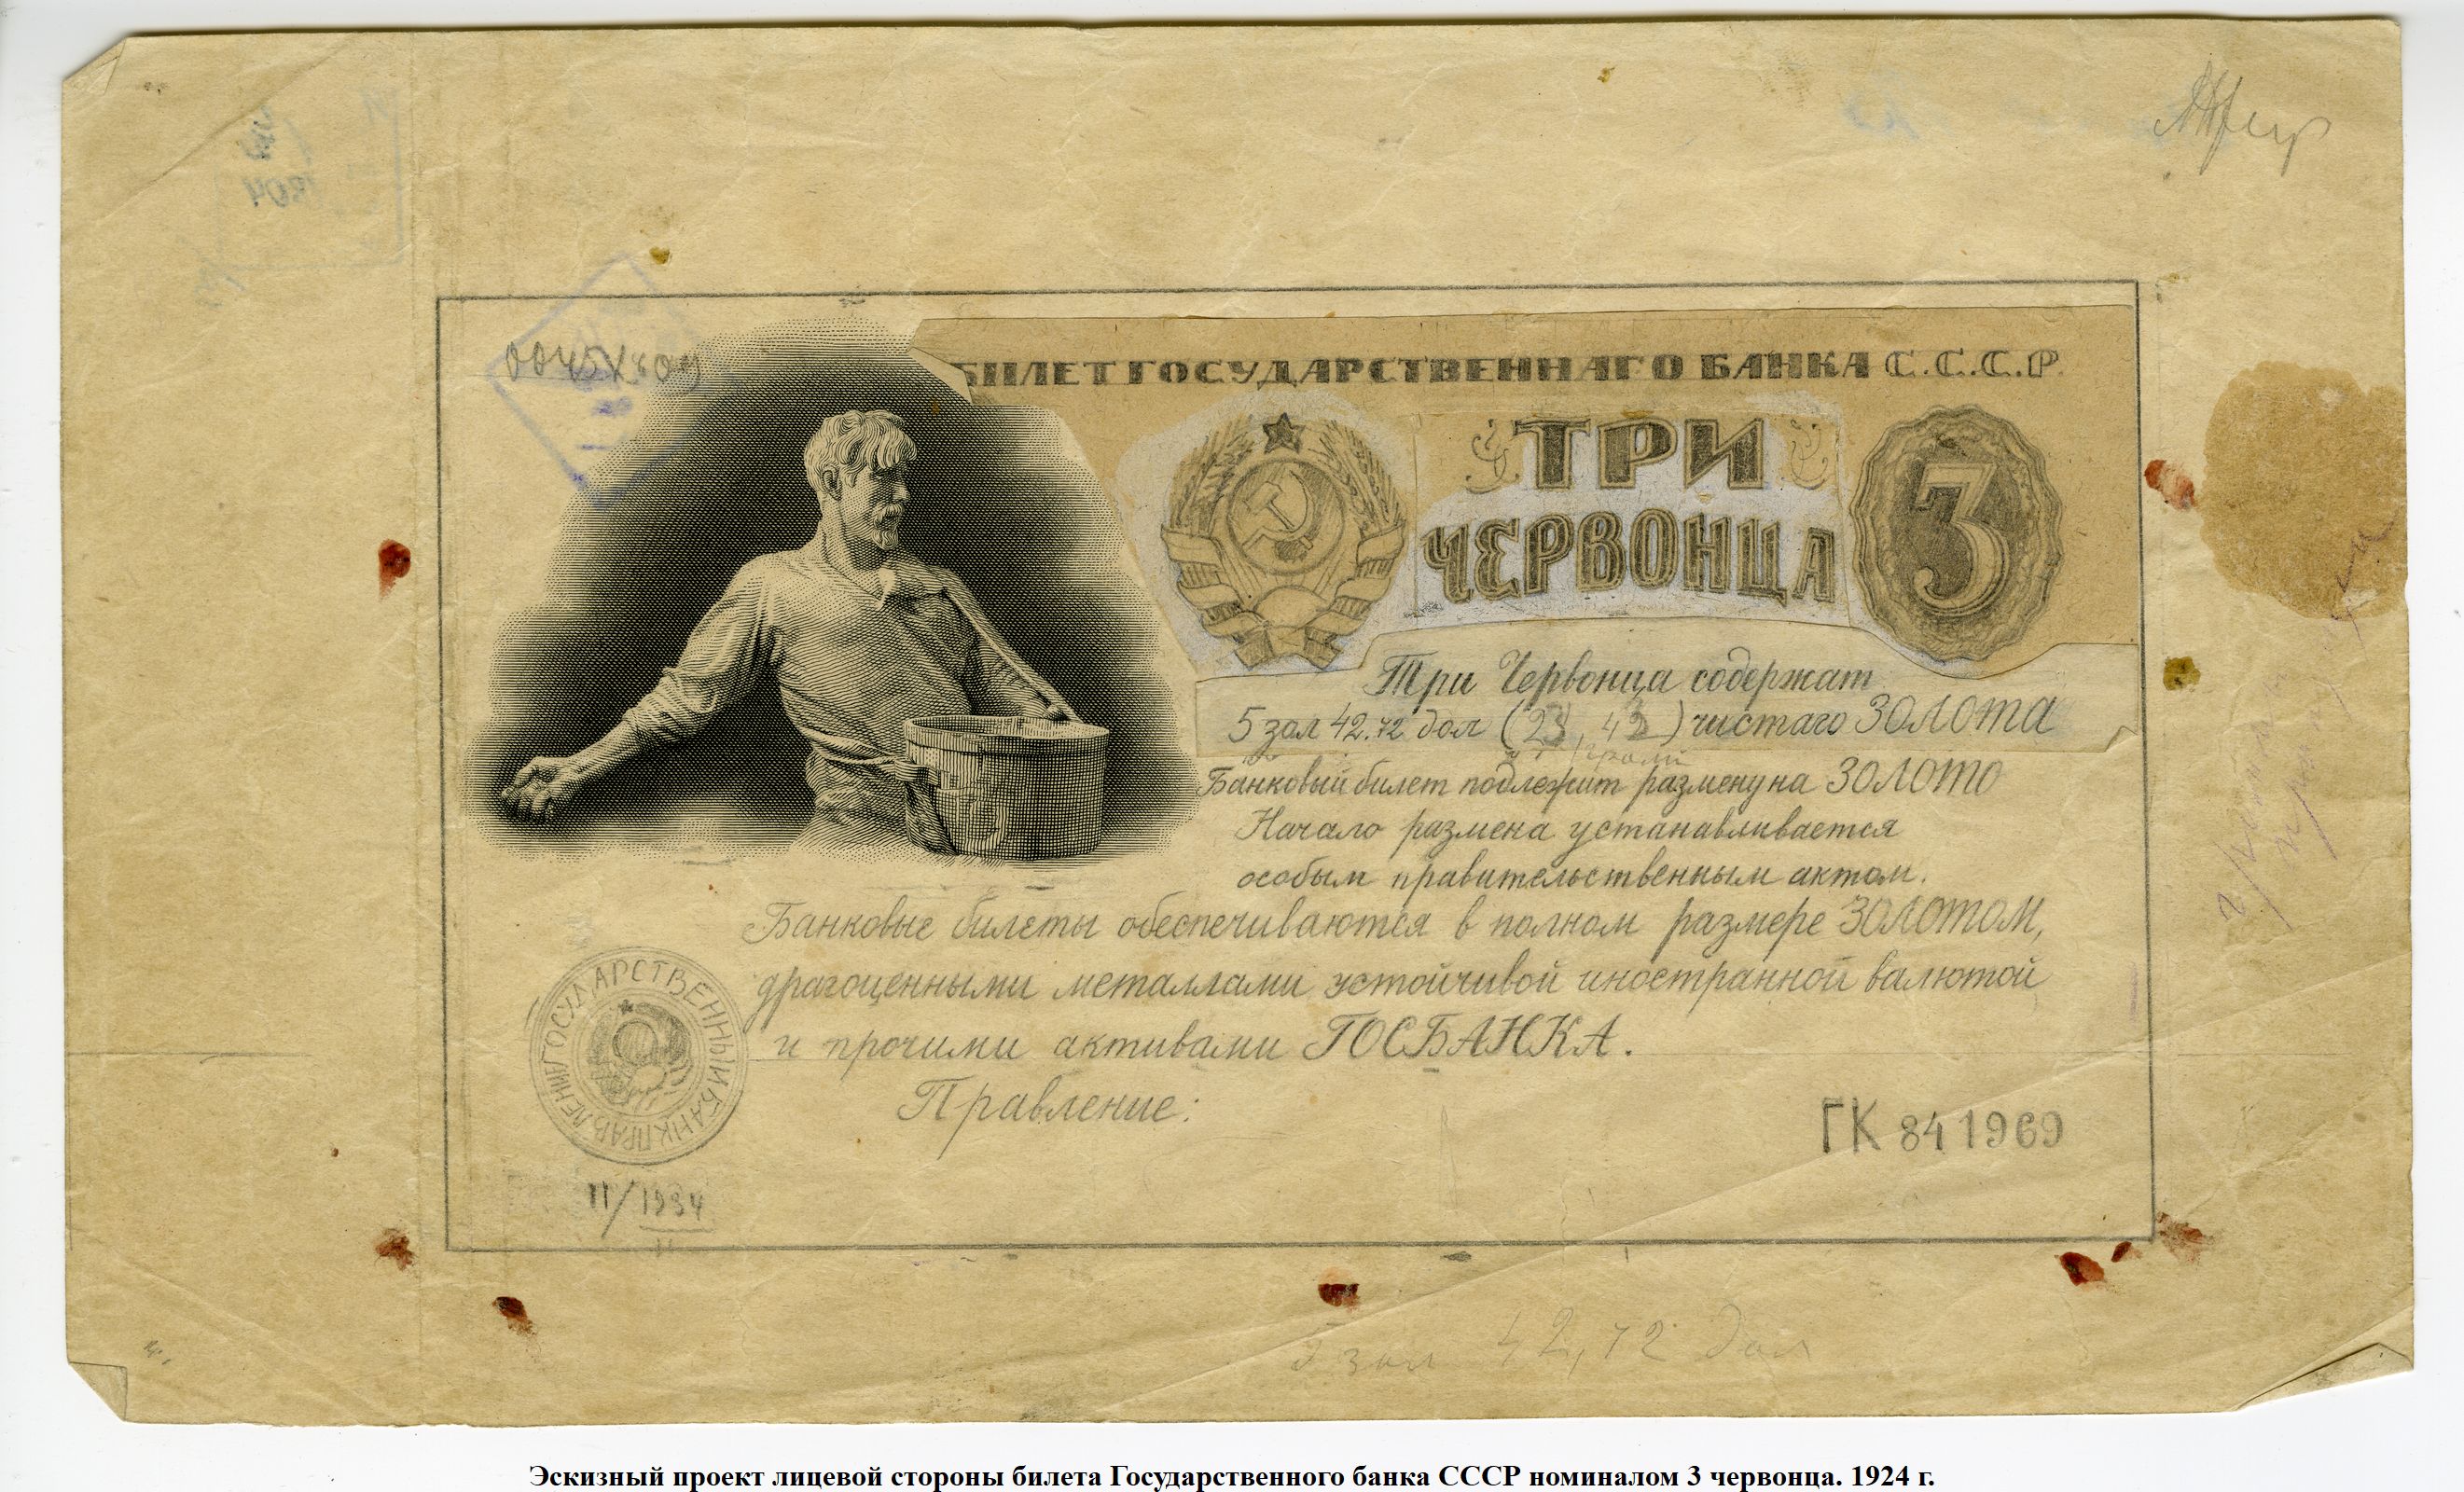 БИЛЕТ ГОСУДАРСТВЕННАГО БАНКА С.С.С.Р.
ТРИ
ЧЕРВОНЦА
3
Три Червонца содержат
5 зол 42.72 дол (23,43) чистаго ЗОЛОТА
Банковый билет подлежит размену на ЗОЛОТО
Начало размена устанавливается
особым правительственным актом.
Банковые билеты обеспечиваются в полном размере ЗОЛОТОМ,
драгоценными металлами устойчивой иностранной валютой
и прочими активами ГОСБАНКА.
Правление:
ГОСУДАРСТВЕННЫЙ БАНК ПРАВЛЕНИЕ
ГК 841969
11/1934
зол 42,72 дол
Эскизный проект лицевой стороны билета Государственного банка СССР номиналом 3 червонца. 1924 г.